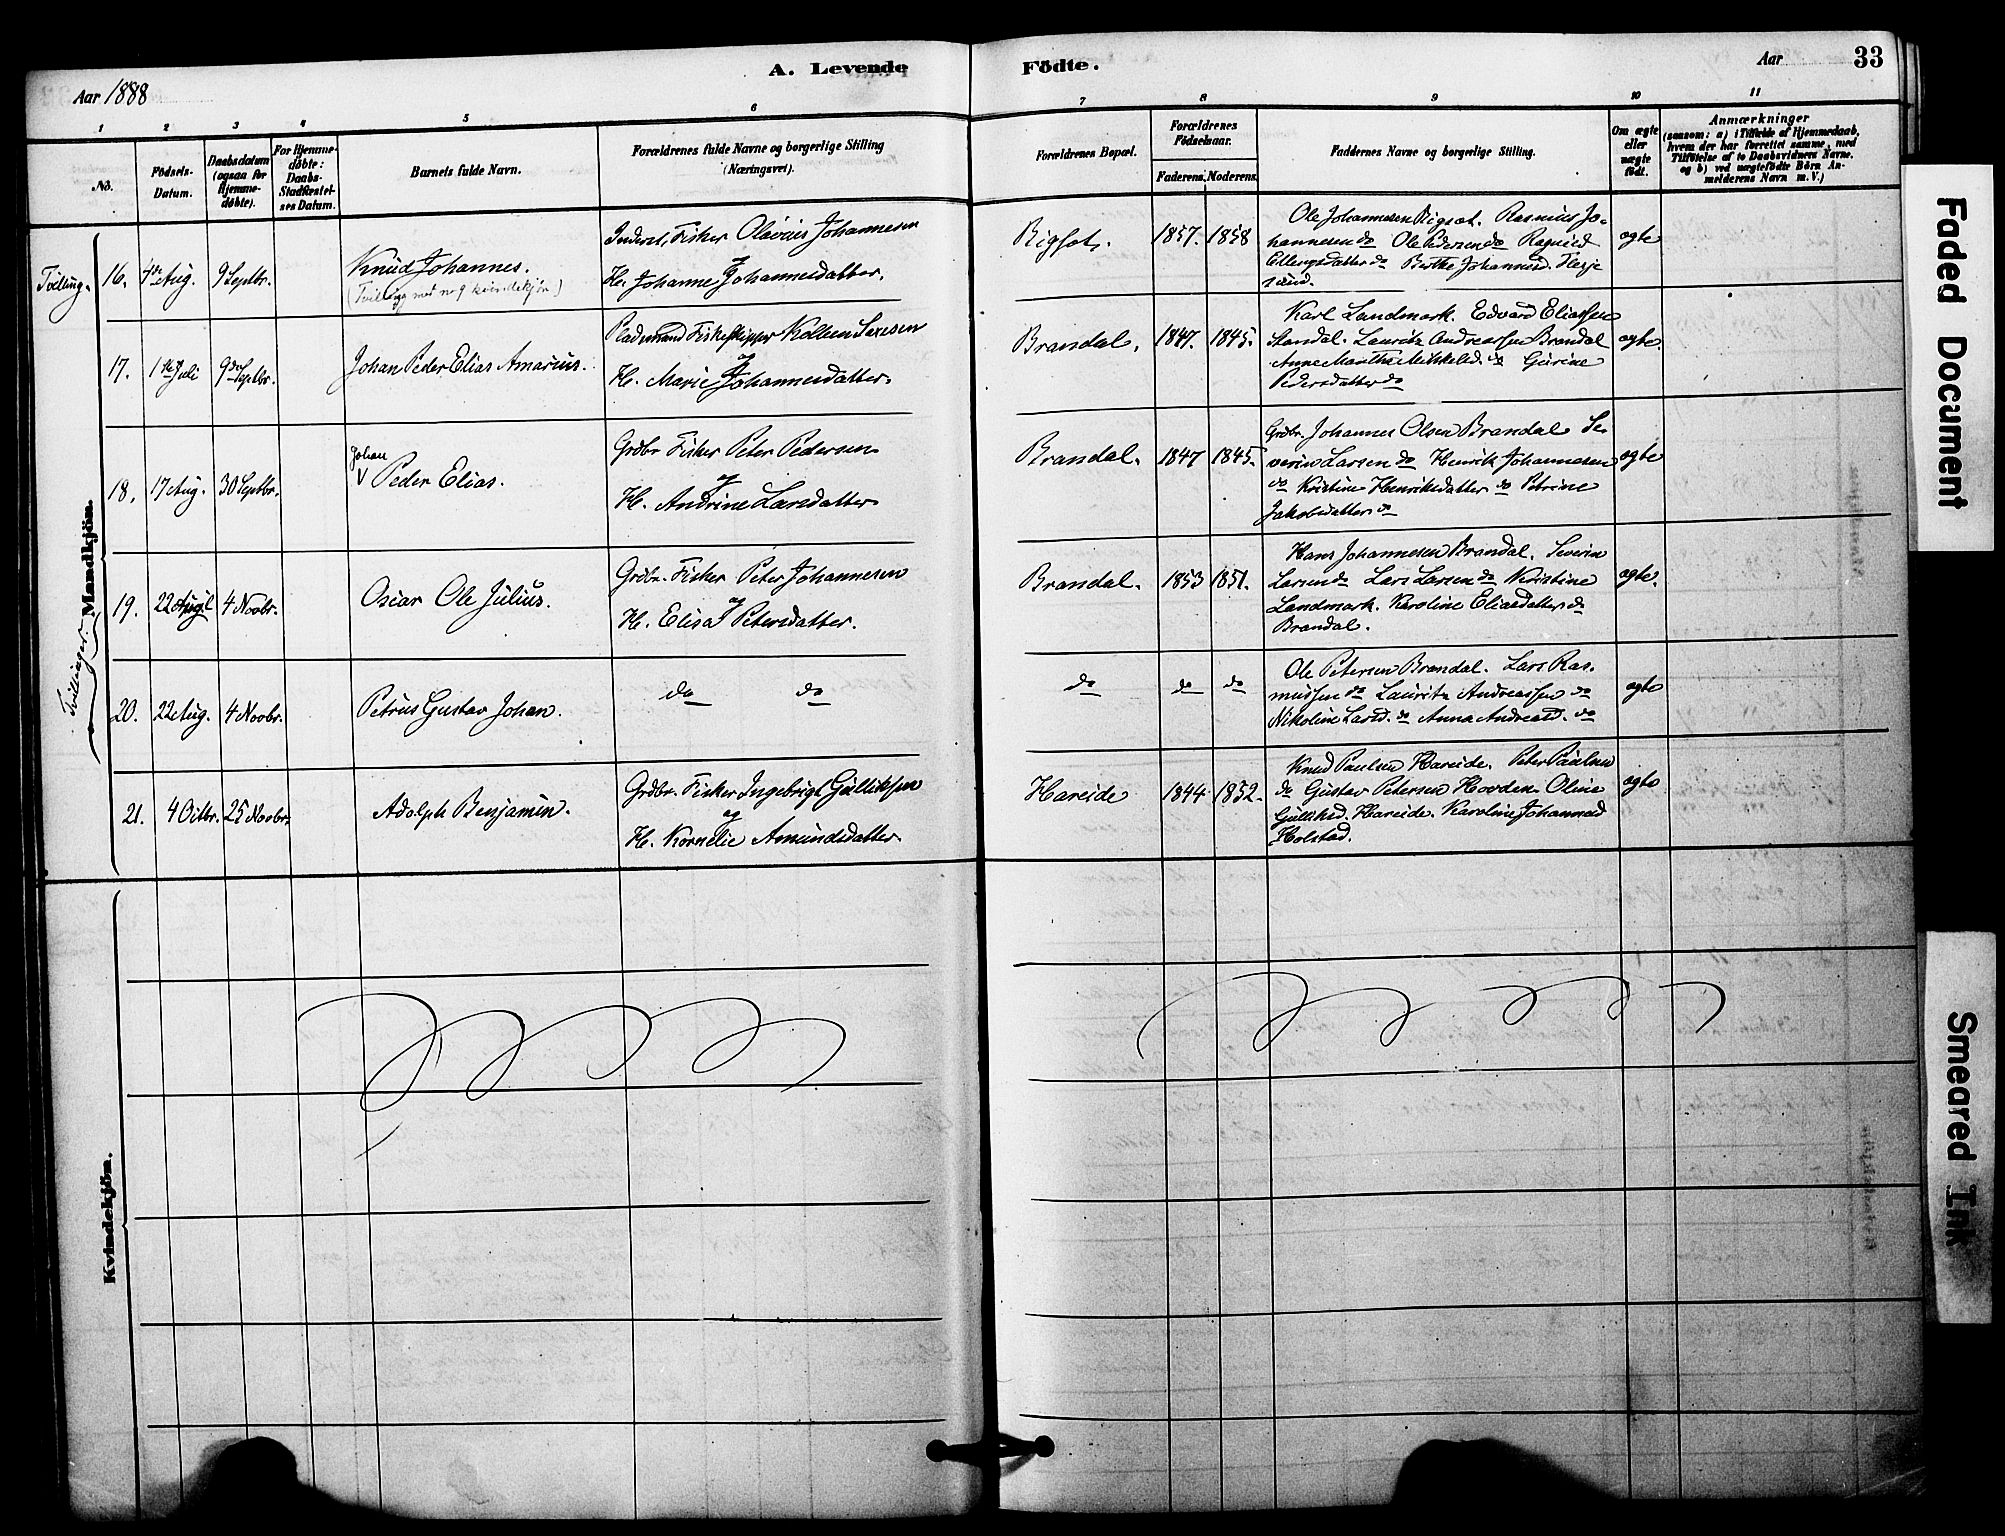 A. Levende Födte.
Aar 1888
Aar 33
1 2 3 4 5 6 7 8 9 10 11
No.
Födsels-
Datum.
Daabsdatum
(ogsaa for
Hjemme-
døbte).
For Hjemme-
döbte:
Daabs-
Stadfæstel-
ses Datum.
Barnets fulde Navn.
Forældrenes fulde Navne og borgerlige Stilling
(Næringsvei).
Forældrenes Bopæl.
Forældrenes
Födselsaar.
Faderens. Moderens.
Faddernes Navne og borgerlige Stilling.
Om ægte
eller
uægte
födt.
Anmærkninger
(saasom: a) i Tilfælde af Hjemmedaab,
hvem der har forrettet samme, med
Tilföielse af to Daabsvidners Navne,
og b) ved uægtefödte Börn An-
melderens Navn m. V.)
Mandkjön.
Tvilling.
16. 4de Aug. 9 Septbr.
Knud Johannes.
(Tvilling med no 9 kvindekjøn)
Inderst, Fisker Olavius Johannesen
og
H. Johanne Johannesdatter.
Rigset. 1857. 1858
Ole Johannesen Rigset. Rasmus Jo-
hannesen do Ole Pedersen do Ragnild
Ellengsdatter do Berthe Johannesd. Flesje
sund.
ægte
17. 1ste Juli 9de Septbr.
Johan Peder Elias Amarius.
Pladsmand Fiskeskipper Kolbeen Sexesen
og
H. Marie Johannesdatter.
Brandal. 1847. 1845.
Karl Landmark. Edvard Eliassen
Standal. Lauritz Andreassen Brandal
Anne Marthe Mikkelsd. do Gurine
Pedersdatter do
ægte.
18. 17 Aug. 30 Septbr.
Johan
V Peder Elias.
Grdbr Fisker Peter Pedersen
og
H. Andrine Larsdatter
Brandal. 1847 1845.
Grdbr. Johannes Olsen Brandal Se-
verin Larsen do Henrik Johannesen
do Kristine Henriksdatter do Petrine
Jakobsdatter do
ægte
Tvillinger
19. 22 Aug. 4 Novbr.
Oscar Ole Julius.
Grdbr. Fisker Peter Johannesen
og
H. Elisa Petersdatter.
Brandal. 1853 1851.
Hans Johannesen Brandal. Severin
Larsen do Lars Larsen do Kristine
Landmark. Karoline Eliasdatter do
Brandal.
ægte.
20. 22 Aug. 4 Novbr.
Petrus Gustav Johan.
do do
do do do
Ole Petersen Brandal. Lars Ras-
mussen do Lauritz Andreassen do
Nikoline Larsd. do Anna Andreasd. do
ægte
21. 4 Octbr. 25 Novbr.
Adolph Benjamin.
Grdbr. Fisker Ingebrigt Gulliksen
og
H. Kornelie Amundsdatter.
Hareide 1844 1852.
Knud Paulsen Hareide. Peter Paulsen
do Gustav Petersen Hovden. Oline
Gulliksd. Hareide. Karoline Johannesd
Holstad.
ægte
Kvindekjön.
Faded Document
Smeared Ink